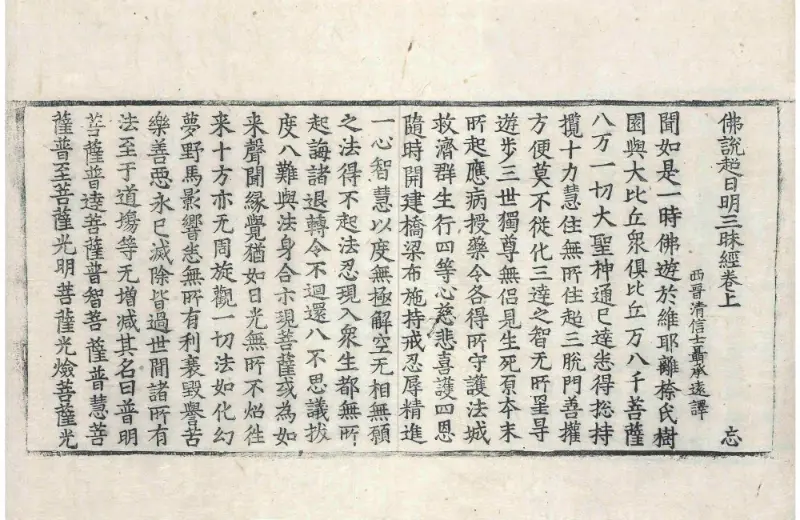 佛說超日明三昧經卷上 忘
西晉清信士聶承遠譯
聞如是一時佛遊於維耶離㮈氏樹
園與大比丘衆俱比丘万八千菩薩
八万一切大聖神通已達悉得揔持
攬十力慧住無所住起三脫門善權
方便莫不從化三達之智无所罣㝵
遊步三世獨尊無侶見生死原夲末
所起應病授藥令各得所守護法城
救濟群生行四等心慈悲喜護四恩
隨時開建橋梁布施持戒忍辱精進
一心智慧以度無極解空无相無願
之法得不起法忍現入衆生都無所
起誨諸退轉令不迴還八不思議拔
度八難與法身合示現菩薩或為如
来聲聞緣覺猶如日光無所不炤徃
来十方亦无周旋觀一切法如化幻
夢野馬影響悉無所有利衰毀譽苦
樂善惡永已滅除皆過世間諸所有
法至于道塲等无增減其名曰普明
菩薩普逹菩薩普智菩薩普慧菩
薩普至菩薩光明菩薩光燄菩薩光